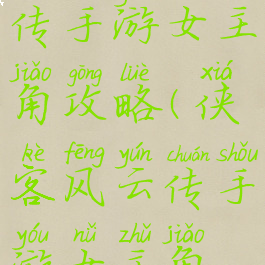 传手游女主
jiǎo gōng lüè xiá
角攻略(侠
kè fēng yún chuán shǒu
客风云传手
yóu nǚ zhǔ jiǎo
游女主角